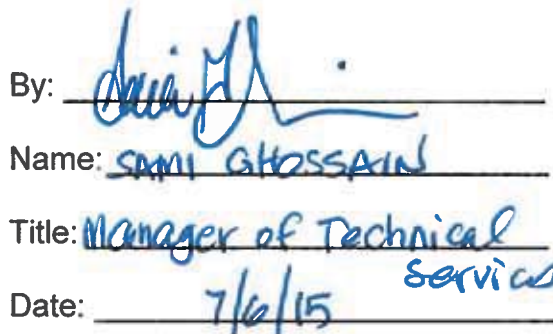 By:
Name: SAMI GHOSSAIN
Title: Manager of Technical
Services
Date: 7/6/15